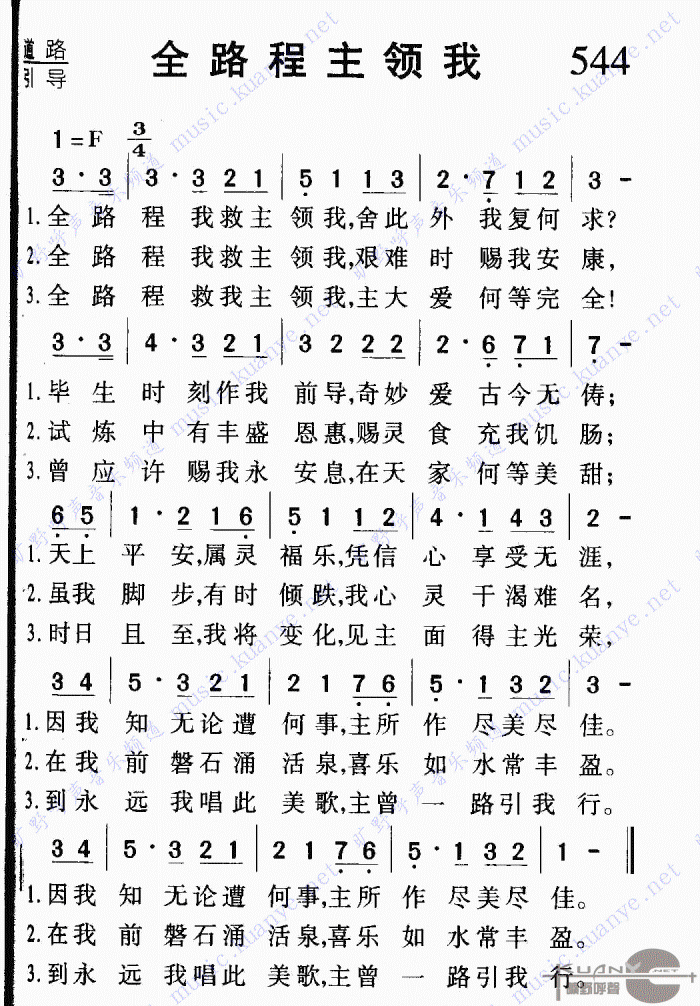 道路
引导
全路程主领我 544
1=F 3/4
3·3 | 3·321 | 5113 | 2·712 | 3-
1.全路程我救主领我,舍此外我复何求?
2.全路程我救主领我,艰难时赐我安康,
3.全路程救我主领我,主大爱何等完全!
3·3 | 4·321 | 3222 | 2·671 | 7-
1.毕生时刻作我前导,奇妙爱古今无俦;
2.试炼中有丰盛恩惠,赐灵食充我饥肠;
3.曾应许赐我永安息,在天家何等美甜;
65 | 1·216 | 5112 | 4·143 | 2-
1.天上平安,属灵福乐,凭信心享受无涯,
2.虽我脚步,有时倾跌,我心灵干渴难名,
3.时日且至,我将变化,见主面得主光荣,
34 | 5·321 | 2176 | 5·132 | 3-
1.因我知无论遭何事,主所作尽美尽佳。
2.在我前磐石涌活泉,喜乐如水常丰盈。
3.到永远我唱此美歌,主曾一路引我行。
34 | 5·321 | 2176 | 5·132 | 1- ‖
1.因我知无论遭何事,主所作尽美尽佳。
2.在我前磐石涌活泉,喜乐如水常丰盈。
3.到永远我唱此美歌,主曾一路引我行。
旷野呼声音乐频道 music.kuanye.net
旷野呼声音乐频道 music.kuanye.net
旷野呼声音乐频道 music.kuanye.net
KUANYE
旷野呼聲